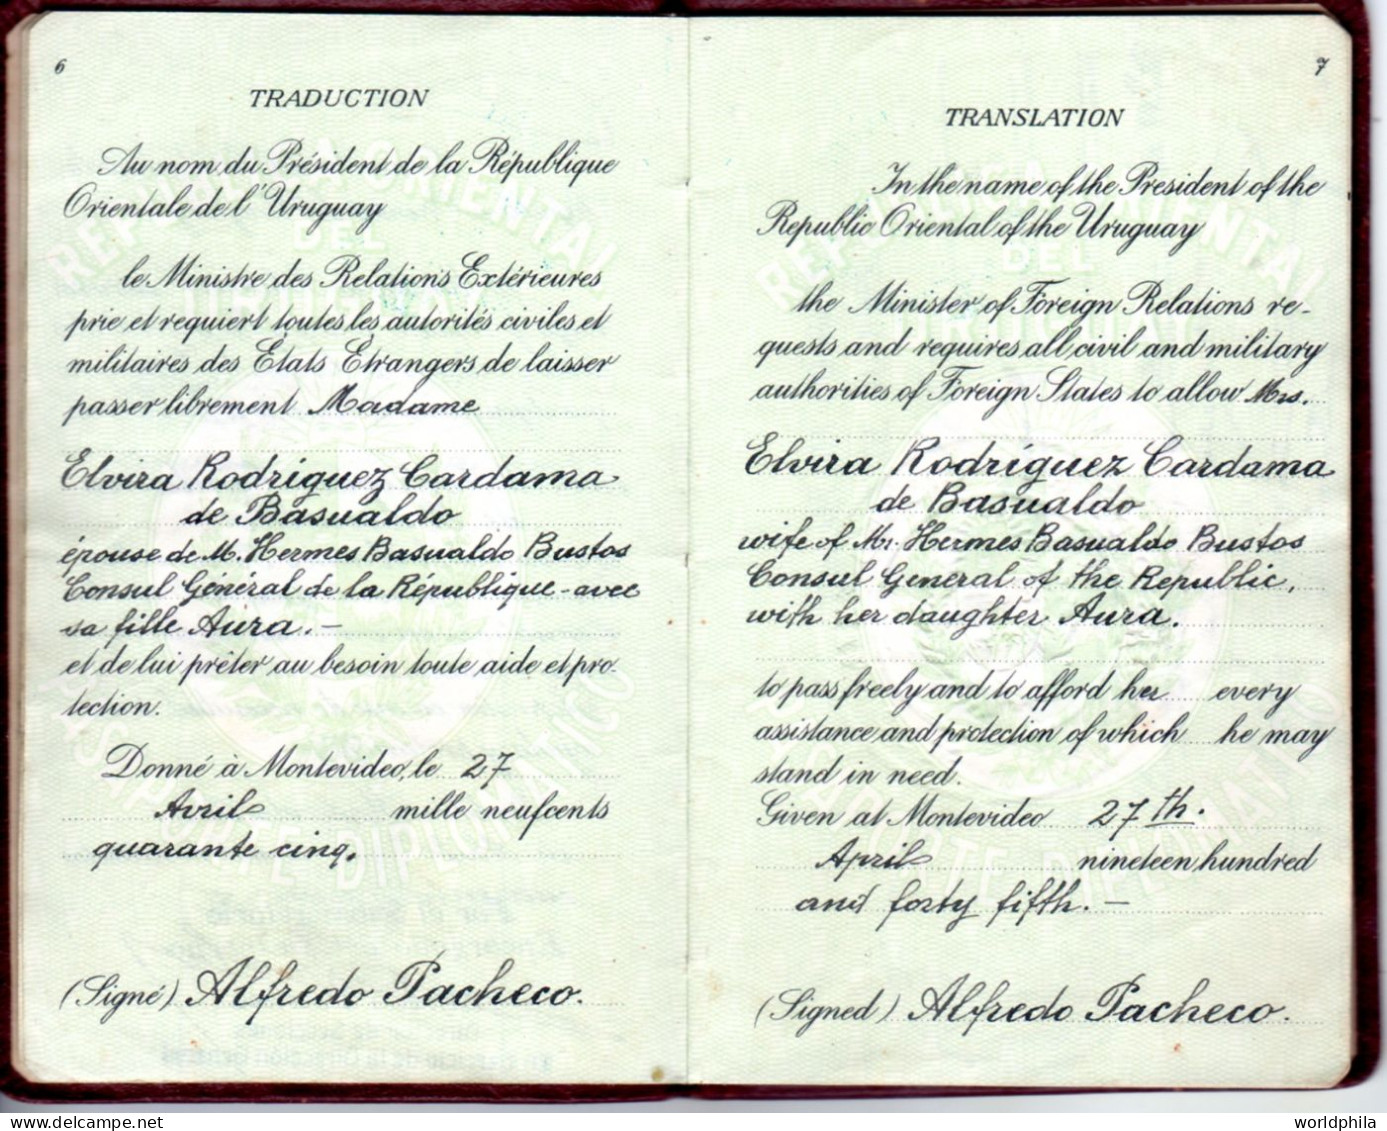 6
TRADUCTION
Au nom du Président de la République
Orientale de l'Uruguay
le Ministre des Relations Extérieures
prie et requiert toutes les autorités civiles et
militaires des États Étrangers de laisser
passer librement Madame
Elvira Rodríguez Cardama
de Basualdo
épouse de M. Hermes Basualdo Bustos
Consul Général de la République - avec
sa fille Aura.-
et de lui prêter au besoin toute aide et pro-
tection.
Donné à Montevideo, le 27
Avril mille neufcents
quarante cinq.
(Signé) Alfredo Pacheco.
7
TRANSLATION
In the name of the President of the
Republic Oriental of the Uruguay
the Minister of Foreign Relations re-
quests and requires all civil and military
authorities of Foreign States to allow Mrs.
Elvira Rodríguez Cardama
de Basualdo
wife of Mr. Hermes Basualdo Bustos
Consul General of the Republic,
with her daughter Aura.
to pass freely and to afford her every
assistance and protection of which he may
stand in need.
Given at Montevideo 27th.
April nineteen hundred
and forty fifth.-
(Signed) Alfredo Pacheco.
REPUBLICA ORIENTAL
DEL
URUGUAY
PASAPORTE DIPLOMATICO
REPUBLICA ORIENTAL
DEL
URUGUAY
PASAPORTE DIPLOMATICO
worldphila